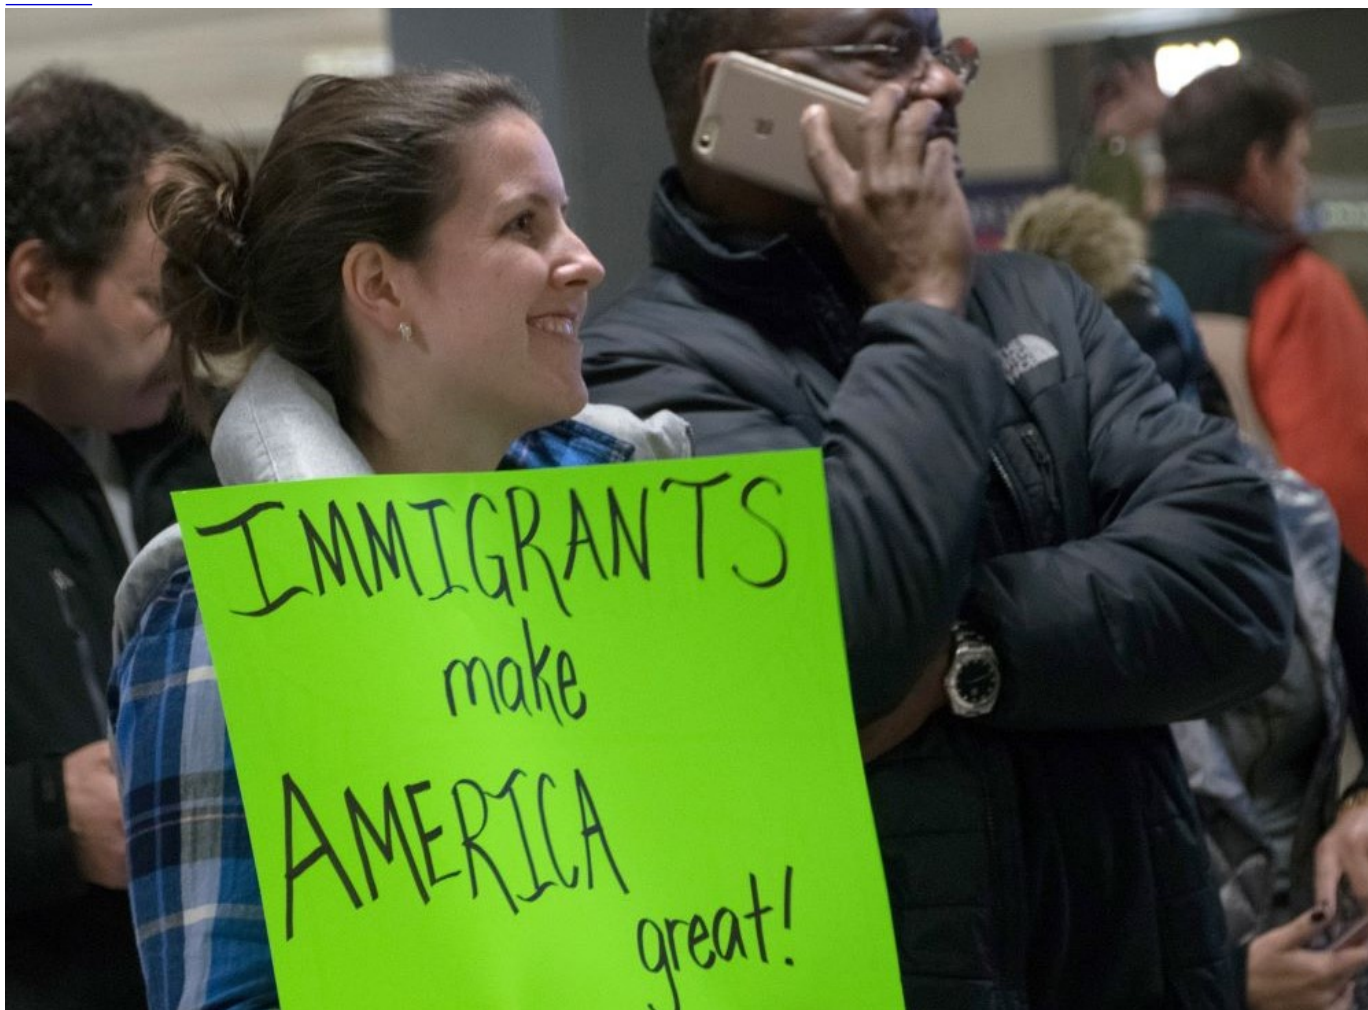 IMMIGRANTS
make
AMERICA
great!